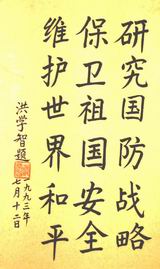 研究国防战略
保卫祖国安全
维护世界和平
洪学智题
一九九三年
七月十二日